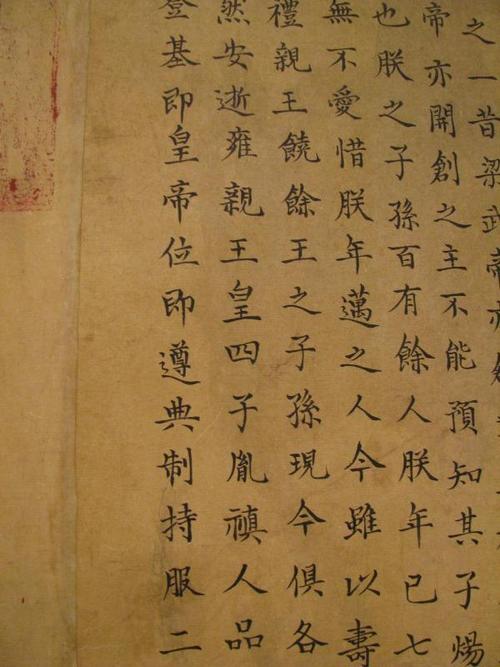 之一昔梁武帝亦
帝亦開創之主不能預知其子煬
也朕之子孫百有餘人朕年已七
無不愛惜朕年邁之人今雖以壽
禮親王饒餘王之子孫現今俱各
然安逝雍親王皇四子胤禛人品
登基即皇帝位即遵典制持服二